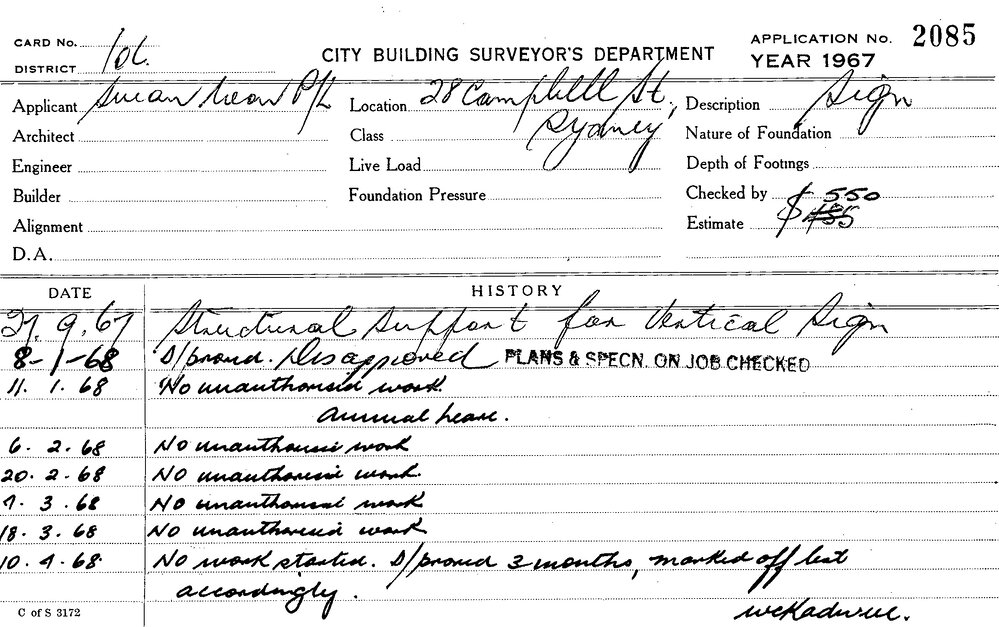 CARD No.
DISTRICT
CITY BUILDING SURVEYOR'S DEPARTMENT
APPLICATION No. 2085
YEAR 1967
Applicant P/L Location 28 Campbell St, Description Sign
Architect Class Sydney Nature of Foundation
Engineer Live Load Depth of Footings
Builder Foundation Pressure Checked by $ 550
Alignment Estimate $
D.A.
DATE HISTORY
27.9.67 Structural Support for Vertical Sign
8-1-68 D/proved. Disapproved PLANS & SPECN. ON JOB CHECKED
11. 1. 68 No unauthorised work.
Annual leave.
6. 2. 68 No unauthorised work
20. 2. 68 No unauthorised work.
7. 3. 68 No unauthorised work
18. 3. 68 No unauthorised work
10. 4. 68 No work started. D/proved 3 months, marked off list
accordingly.
C of S 3172